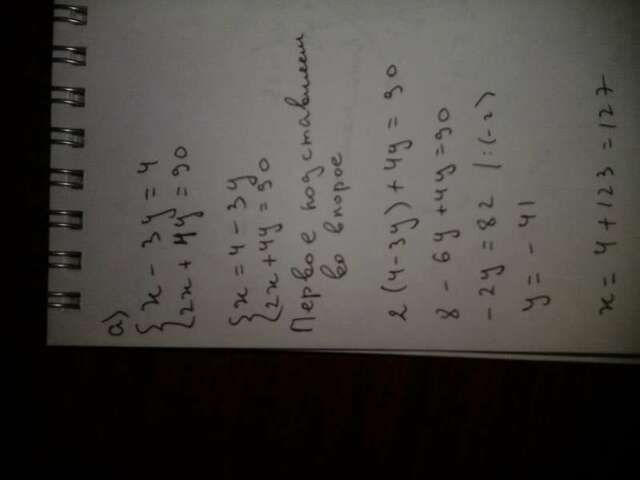 а)
{ x - 3y = 4
{ 2x + 4y = 90
{ x = 4 - 3y
{ 2x + 4y = 90
Первое подставляем
во второе
2(4-3y) + 4y = 90
8 - 6y + 4y = 90
-2y = 82 |:(-2)
y = - 41
x = 4 + 123 = 127